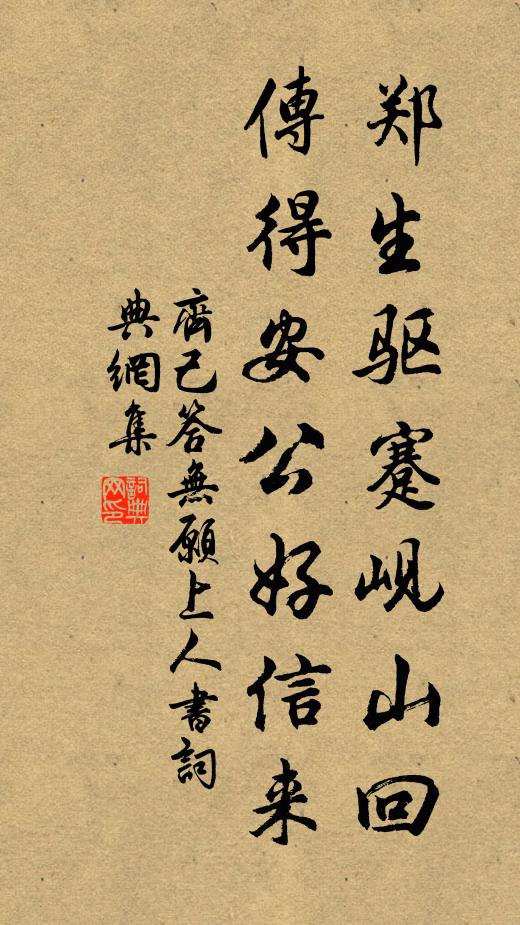 郑生驱蹇岘山回
傳得安公好信来
齊己答無願上人書詞
典網集
詞典網印